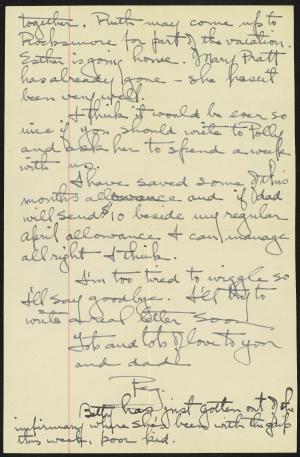 together. Ruth may come up to
Rocksmere for part of the vacation.
Esther is going home. Mary Pratt
has already gone – she hasn't
been very well.
I think it would be ever so
nice if you should write to Polly
and ask her to spend a week
with us.
I have saved some of this
months allowance and if dad
will send $10 beside my regular
april allowance I can manage
all right I think.
I'm too tired to wiggle so
I'll say goodbye. I'll try to
write a real letter soon
Lots and lots of love to you
and dad
Peg.
Beth has just gotten out of the
infirmary where she's been with the grip
this week, poor kid.